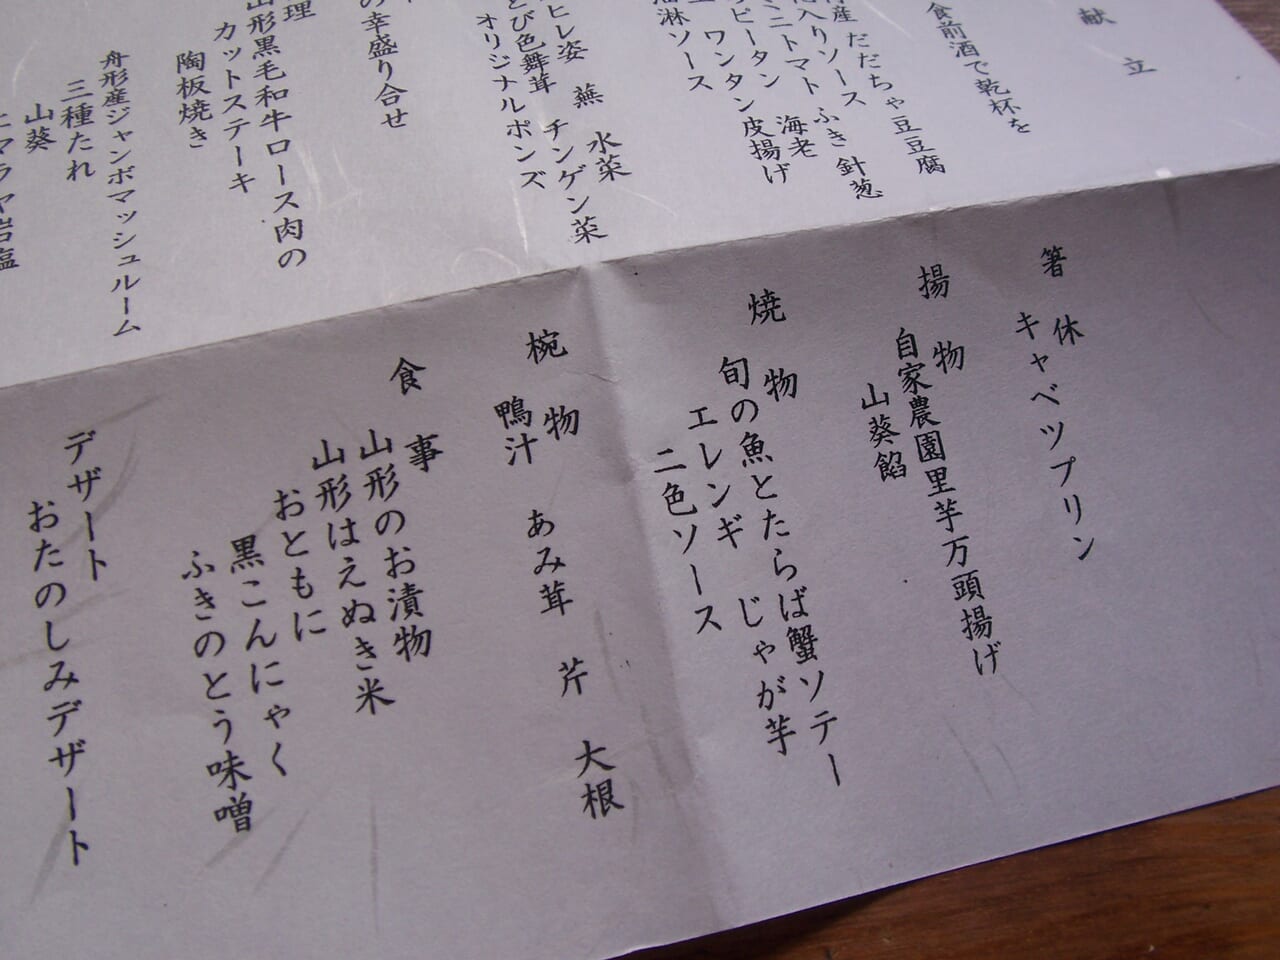 献立
食前酒で乾杯を
産 だだちゃ豆豆腐
入りソース ふき 針葱
ミニトマト 海老
ピータン ワンタン皮揚げ
油淋ソース
ヒレ姿 蕪 水菜
とび色舞茸 チンゲン菜
オリジナルポンズ
の幸盛り合せ
理
山形黒毛和牛ロース肉の
カットステーキ
陶板焼き
舟形産ジャンボマッシュルーム
三種たれ
山葵
ヒマラヤ岩塩
箸休
キャベツプリン
揚物
自家農園里芋万頭揚げ
山葵餡
焼物
旬の魚とたらば蟹ソテー
エレンギ じゃが芋
二色ソース
椀物
鴨汁 あみ茸 芹 大根
食事
山形のお漬物
山形はえぬき米
おともに
黒こんにゃく
ふきのとう味噌
デザート
おたのしみデザート